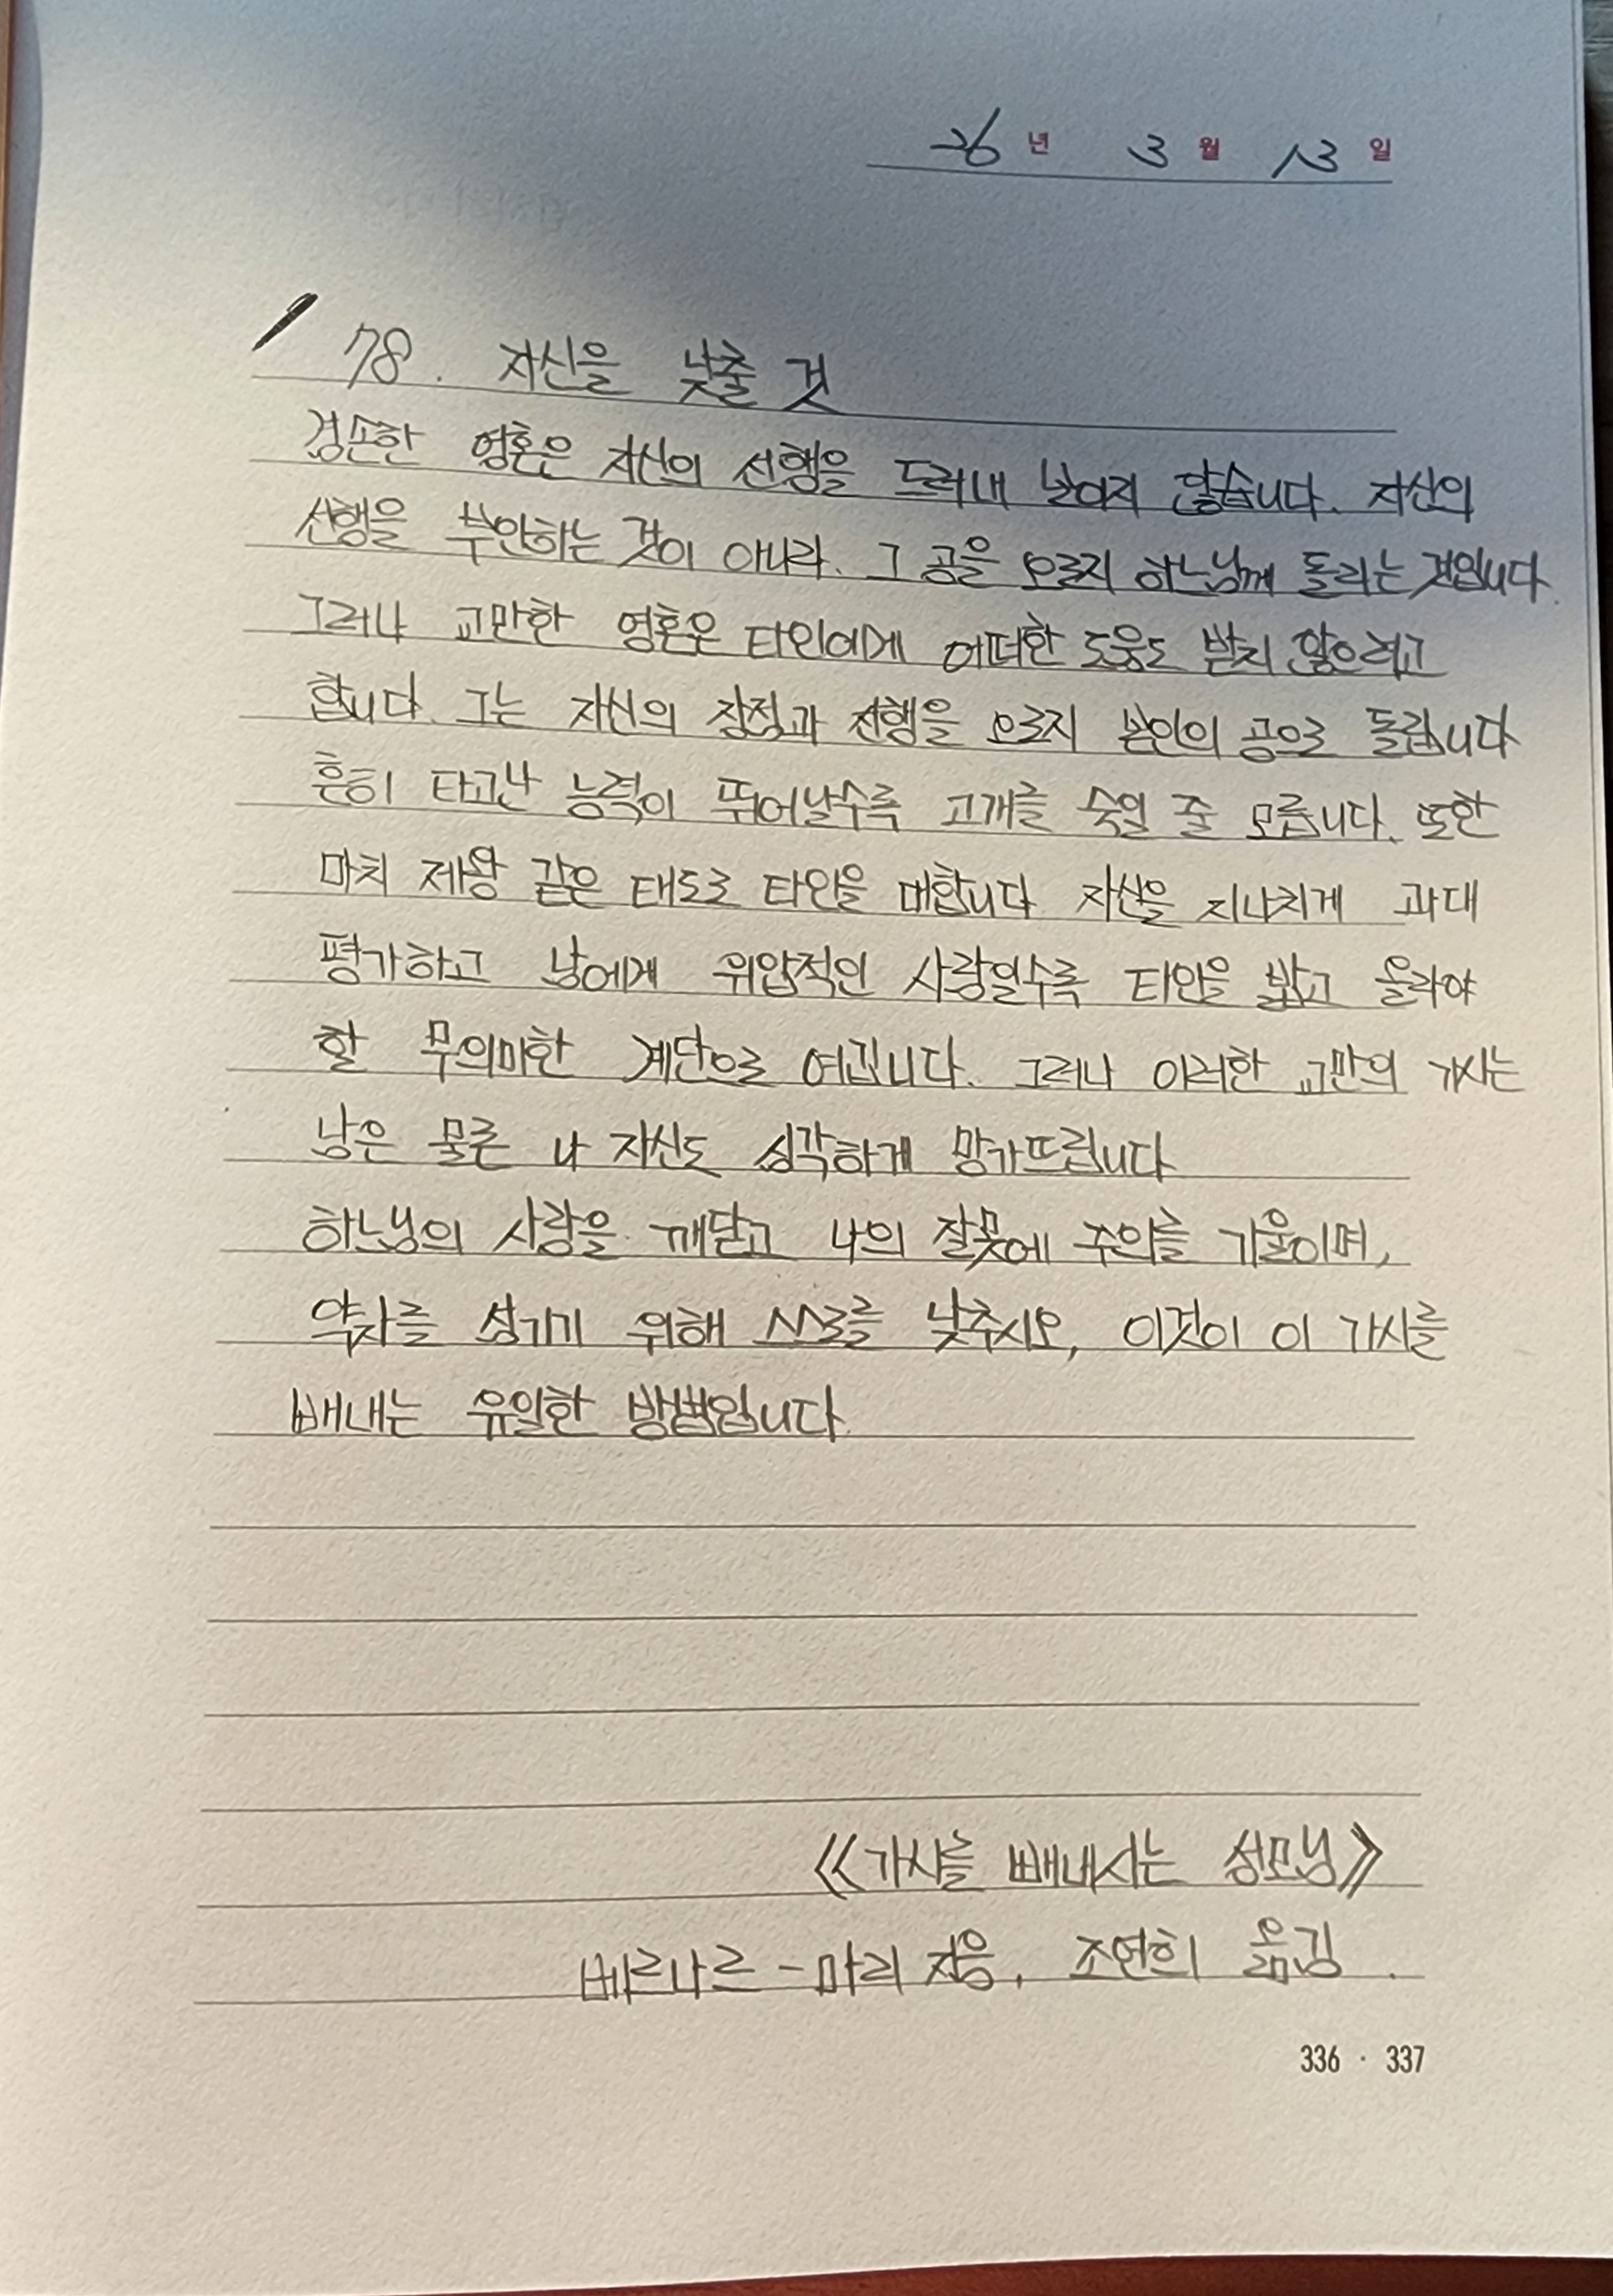 26년 3월 13일
78. 자신을 낮출 것
겸손한 영혼은 자신의 선행을 드러내 보이지 않습니다. 자신의
선행을 부인하는 것이 아니라. 그 공을 오로지 하느님께 돌리는 것입니다.
그러나 교만한 영혼은 타인에게 어떠한 도움도 받지 않으려고
합니다. 그는 자신의 장점과 선행을 오로지 본인의 공으로 돌립니다
흔히 타고난 능력이 뛰어날수록 고개를 숙일 줄 모릅니다. 또한
마치 제왕 같은 태도로 타인을 대합니다 자신을 지나치게 과대
평가하고 남에게 위압적인 사람일수록 타인을 밟고 올라야
할 무의미한 계단으로 여깁니다. 그러나 이러한 교만의 가시는
남은 물론 나 자신도 심각하게 망가뜨립니다
하느님의 사랑을 깨닫고 나의 잘못에 주의를 기울이며,
약자를 섬기기 위해 스스로를 낮추시오, 이것이 이 가시를
빼내는 유일한 방법입니다.
《가시를 빼내시는 성모님》
베르나르-마리 지음, 조연희 옮김.
336 · 337